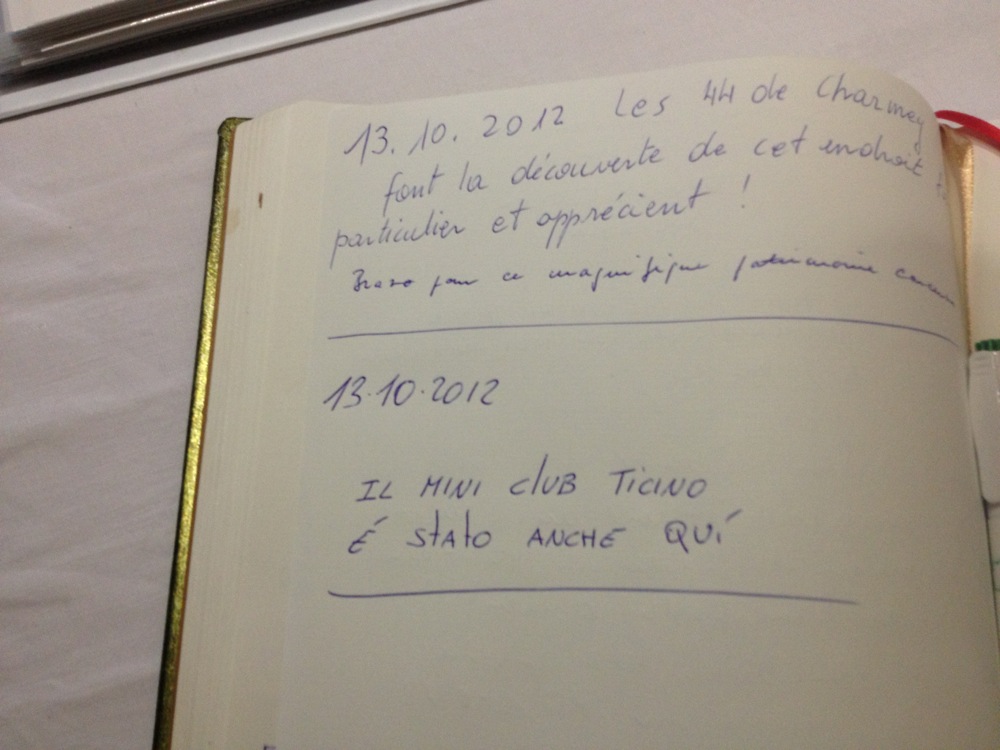 13.10.2012 Les 44 de Charmey
font la découverte de cet endroit
particulier et apprécient !
Bravo pour ce magnifique patrimoine
13.10.2012
IL MINI club TiciNO
É StAtO ANCHE QUÍ